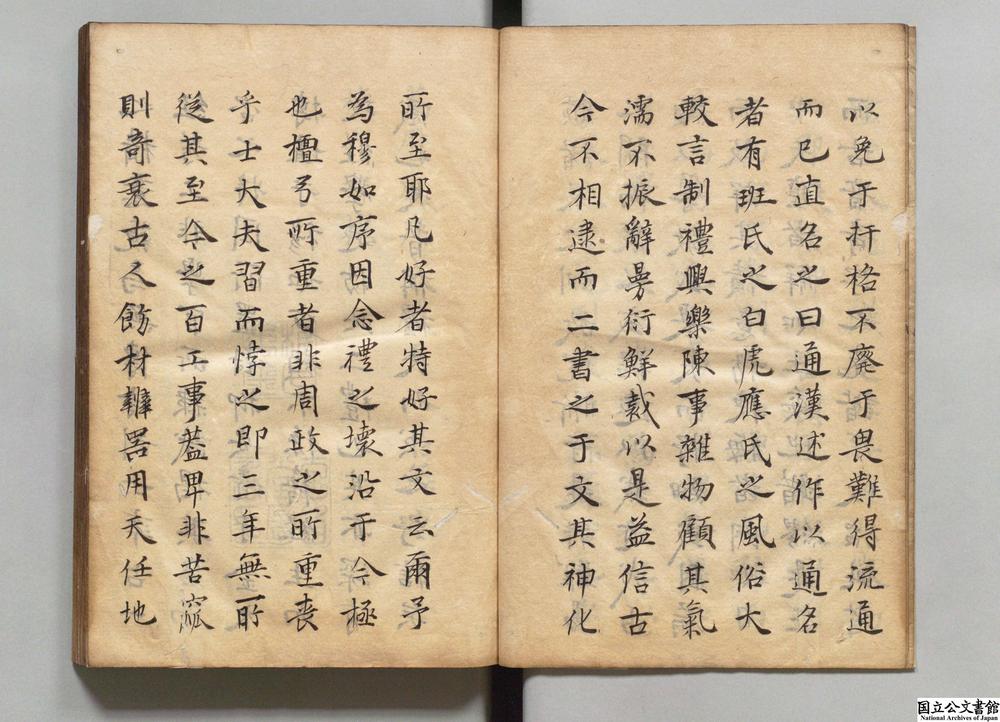 以免于扞格不廢于畏難得流通
而已直名之曰通漢述作以通名
者有班氏之白虎應氏之風俗大
較言制禮興樂陳事雜物顧其氣
濡不振辭曼衍鮮裁以是益信古
今不相逮而二書之于文其神化
所至耶凡好者特好其文云爾予
為穆如序因念禮之壞沿于今極
也檀弓所重者非周政之所重喪
乎士大夫習而悖之即三年無所
從其至今之百工事蓋卑非苦窳
則奇袤古人飭材辨器用天任地
国立公文書館
National Archives of Japan